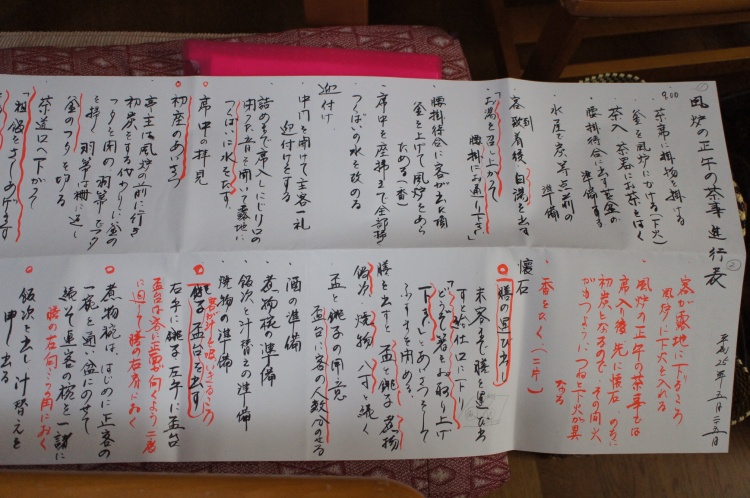 ①
風炉の正午の茶事 進行表
9:00
・茶事に掛物を掛ける
釜を風炉にかける(下火)
茶入 茶器にお茶をはく
腰掛待合に出す莨盆の
準備する
・水屋で炭 薄茶点前の
準備
客到着後、白湯を出す
「お湯を召し上かって
腰掛にお通り下さい」
腰掛待合に客が出た頃
釜を上げて風炉をあら
ためる(香)
・席中を座掃まで全部掃
・つくばいの水を改める
迎付け
・中門を開けて主客一礼
迎付けをする
詰めまで席入りしにじり口の
つくばいに水をたす
・席中の拝見
初座のあいさつ
・亭主は風炉の前に行き
初炭をする代わりに釜の
フタを閉め 羽箒でフタ
を掃 羽箒は棚に返し
釜のフタを切る
・茶道口へ下がる
「粗飯をさしあげます」
②
平成25年5月25日
客が露地に下りるころ
風炉に下火を入れる
風炉の正午の茶事では
席入り後 先に懐石 のちに
初炭となるので、その間火
がもつようにつねに下火が異
なる
・香をたく(一片)
懐石
膳の運び出し
末客まで膳を運び出
すと給仕口に下り
「どうぞ箸をお取り上げ
下さい」とあいさつをして
ふすまを閉める。
膳を出すと 盃と銚子 煮物
飯次 焼物 八寸と続く
・盃と銚子の用意
盃台に客の人数分のせる
・酒の準備
・煮物椀の準備
・飯次と汁替えの準備
・焼物の準備
銚子 盃台を出す
右手に銚子 左手に盃台
盃台は客に正面が向くよう二度
に回して膳の右肩におく
煮物椀は、はじめに正客の
一椀を通い盆にのせて
続く連客の椀を一諸に
膳の左向こう角におく
飯次を出し汁替えを
申し出る